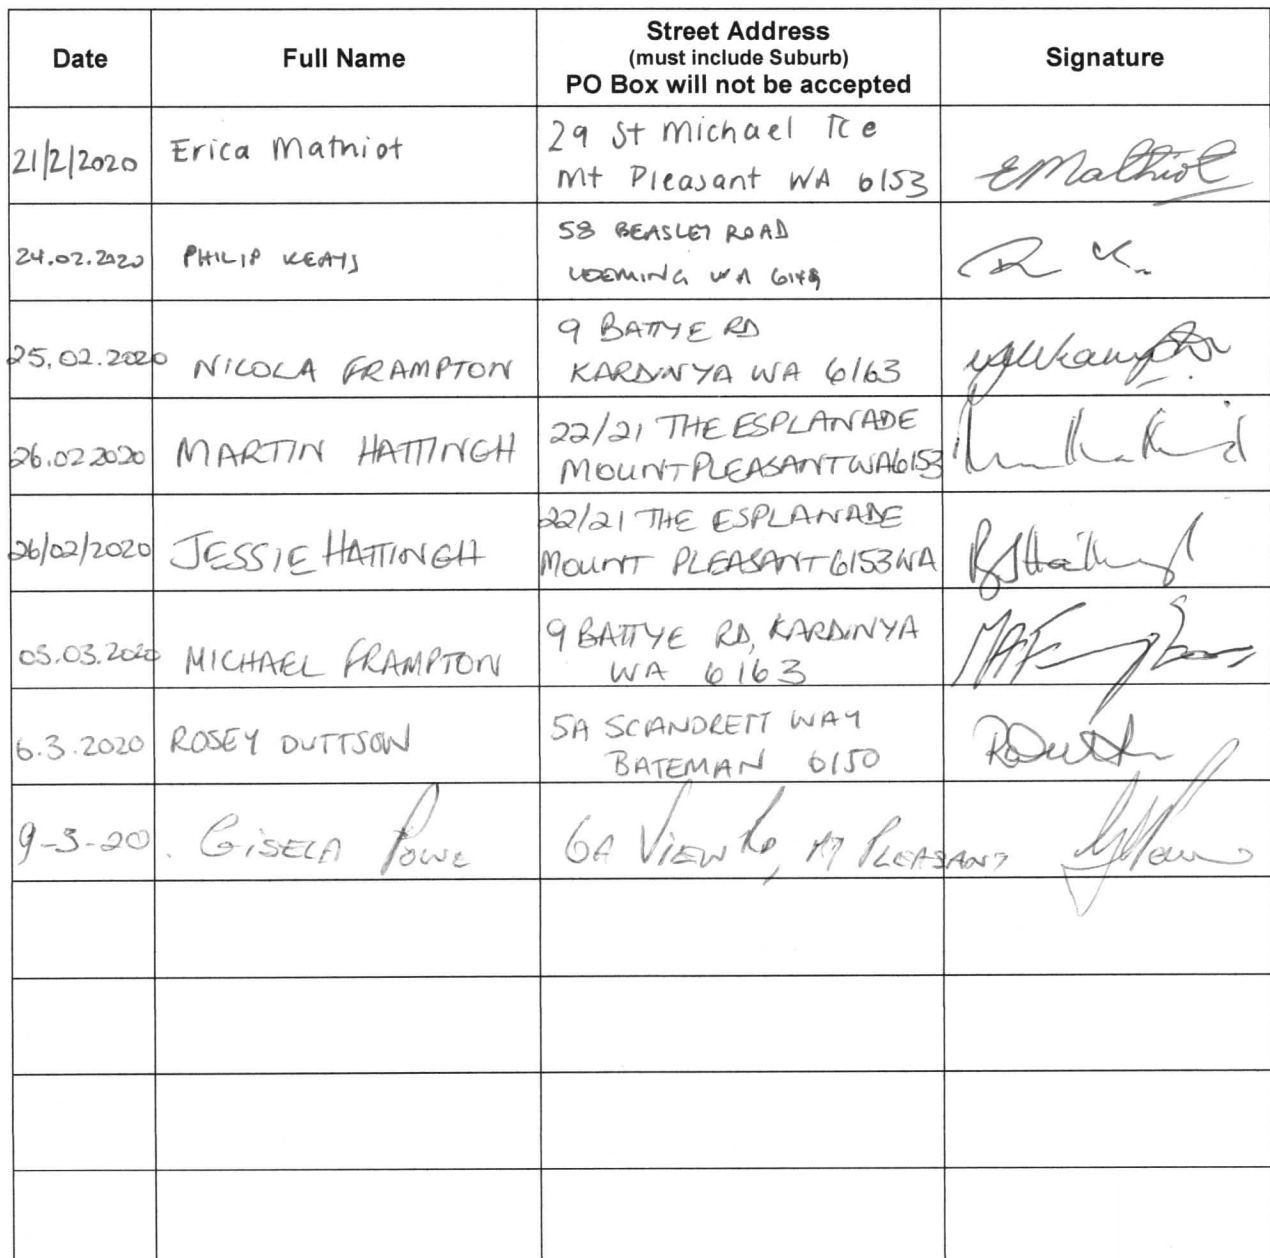 Date Full Name Street Address Signature
(must include Suburb)
PO Box will not be accepted
21/2/2020 Erica Mathiot 29 St Michael Tce EMathiot
Mt Pleasant WA 6153
24.02.2020 PHILIP KEAYS 58 BEASLEY ROAD
LEEMING WA 6149
25.02.2020 NICOLA FRAMPTON 9 BATTYE RD
KARDINYA WA 6163
26.02 2020 MARTIN HATTINGH 22/21 THE ESPLANADE
MOUNT PLEASANT WA 6153
26/02/2020 JESSIE HATTINGH 22/21 THE ESPLANADE
MOUNT PLEASANT 6153 WA
05.03.2020 MICHAEL FRAMPTON 9 BATTYE RD, KARDINYA
WA 6163
6.3.2020 ROSEY DUTTSON 5A SCANDRETT WAY
BATEMAN 6150
9-3-20. GISELA POWE 6A VIEW RD, MT PLEASANT